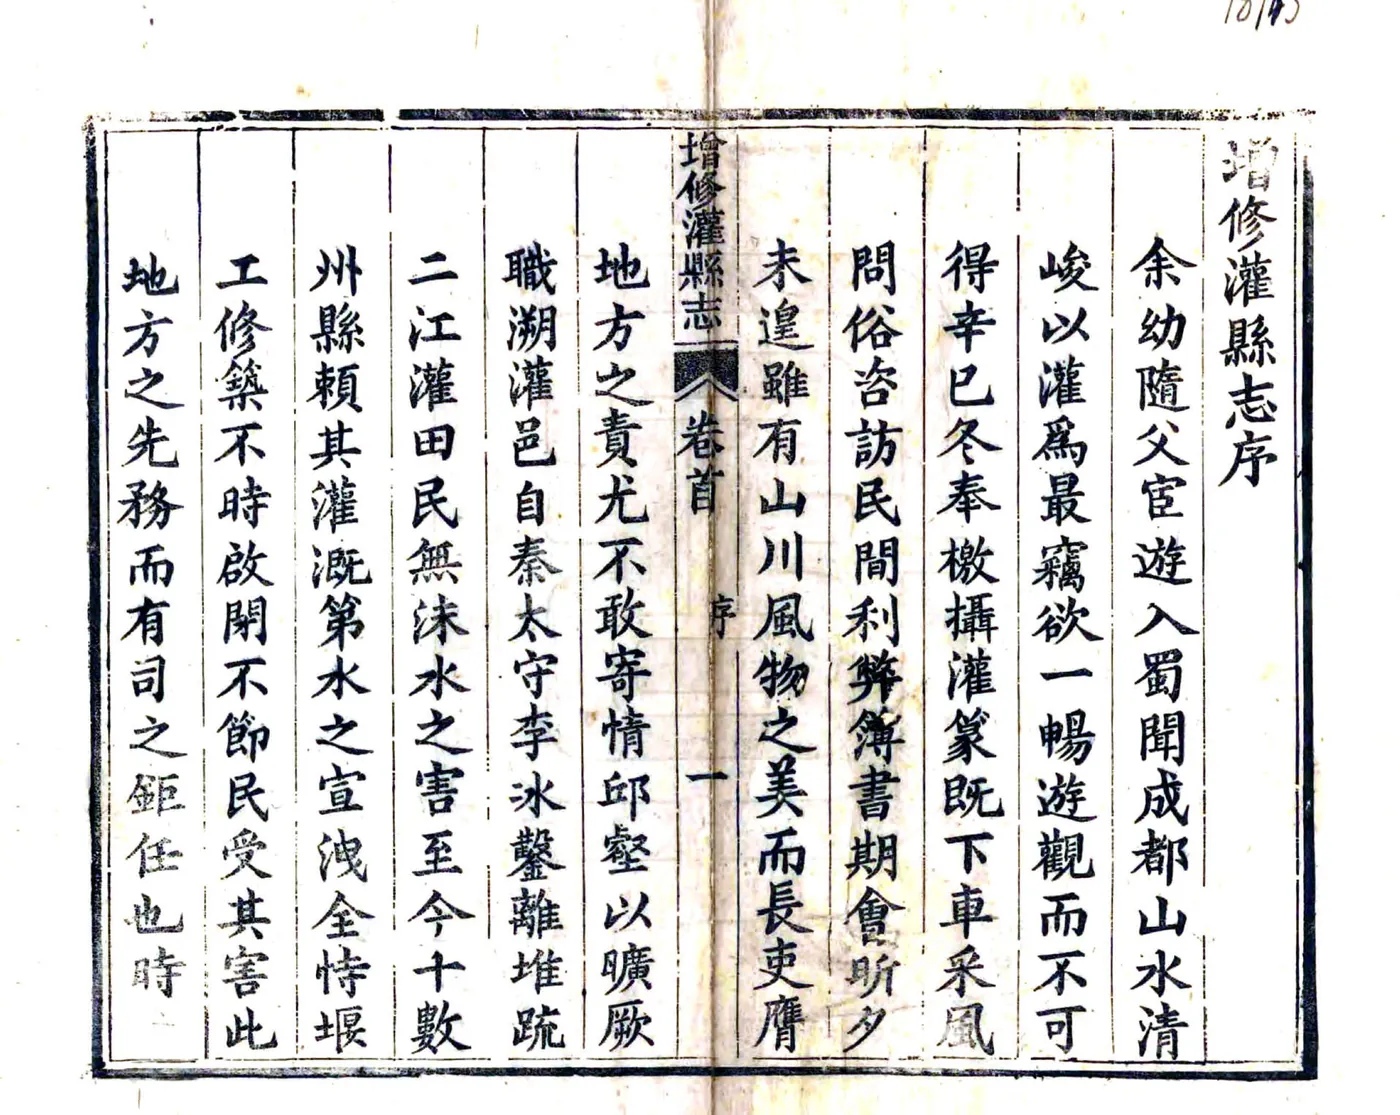 增修灌縣志序
余幼隨父宦遊入蜀聞成都山水清
峻以灌爲最竊欲一暢遊觀而不可
得辛巳冬奉檄攝灌篆既下車采風
問俗咨訪民間利弊簿書期會昕夕
未遑雖有山川風物之美而長吏膺
增修灌縣志 卷首 序 一
地方之責尤不敢寄情邱壑以曠厥
職溯灌邑自秦太守李冰鑿離堆疏
二江灌田民無沫水之害至今十數
州縣賴其灌溉第水之宣洩全恃堰
工修築不時啟閉不節民受其害此
地方之先務而有司之鉅任也時